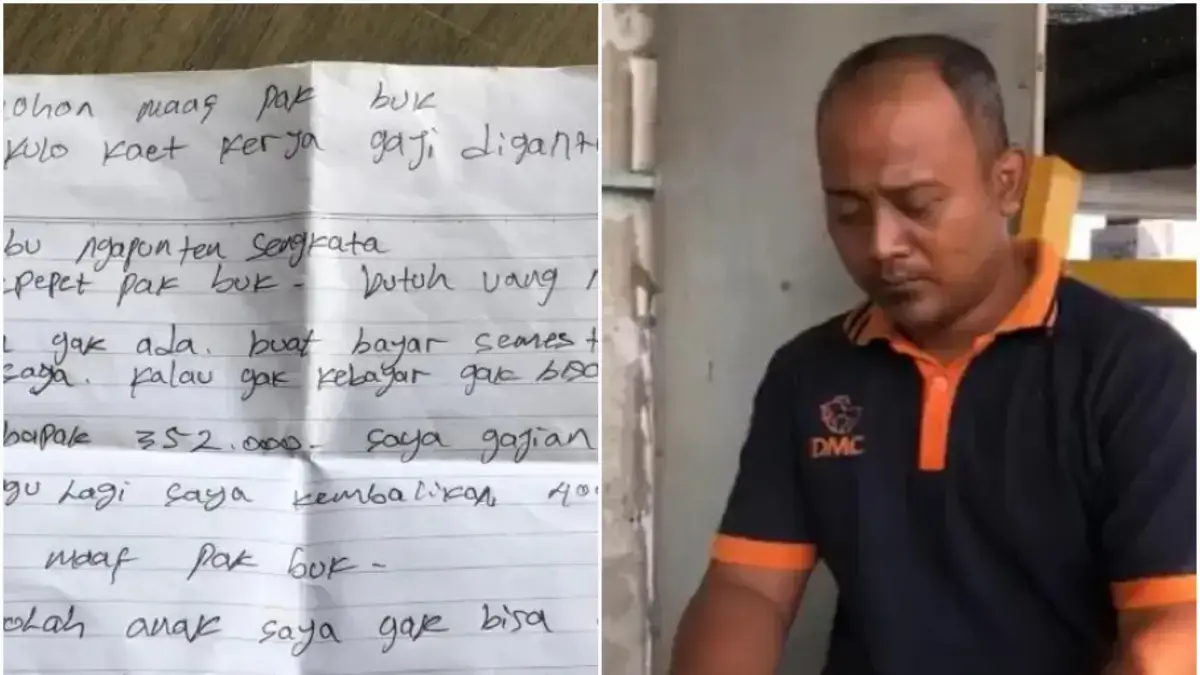 ohon maaf pak buk
kulo kaet kerja gaji digant
bu ngapunten sengkata
epepet pak buk - butuh uang
gak ada. buat bayar semest
saya. kalau gak kebayar gak bisa
bapak 352.000 - saya gajian
gu lagi saya kembalikan 40
maaf pak buk -
olah anak saya gak bisa
DMC